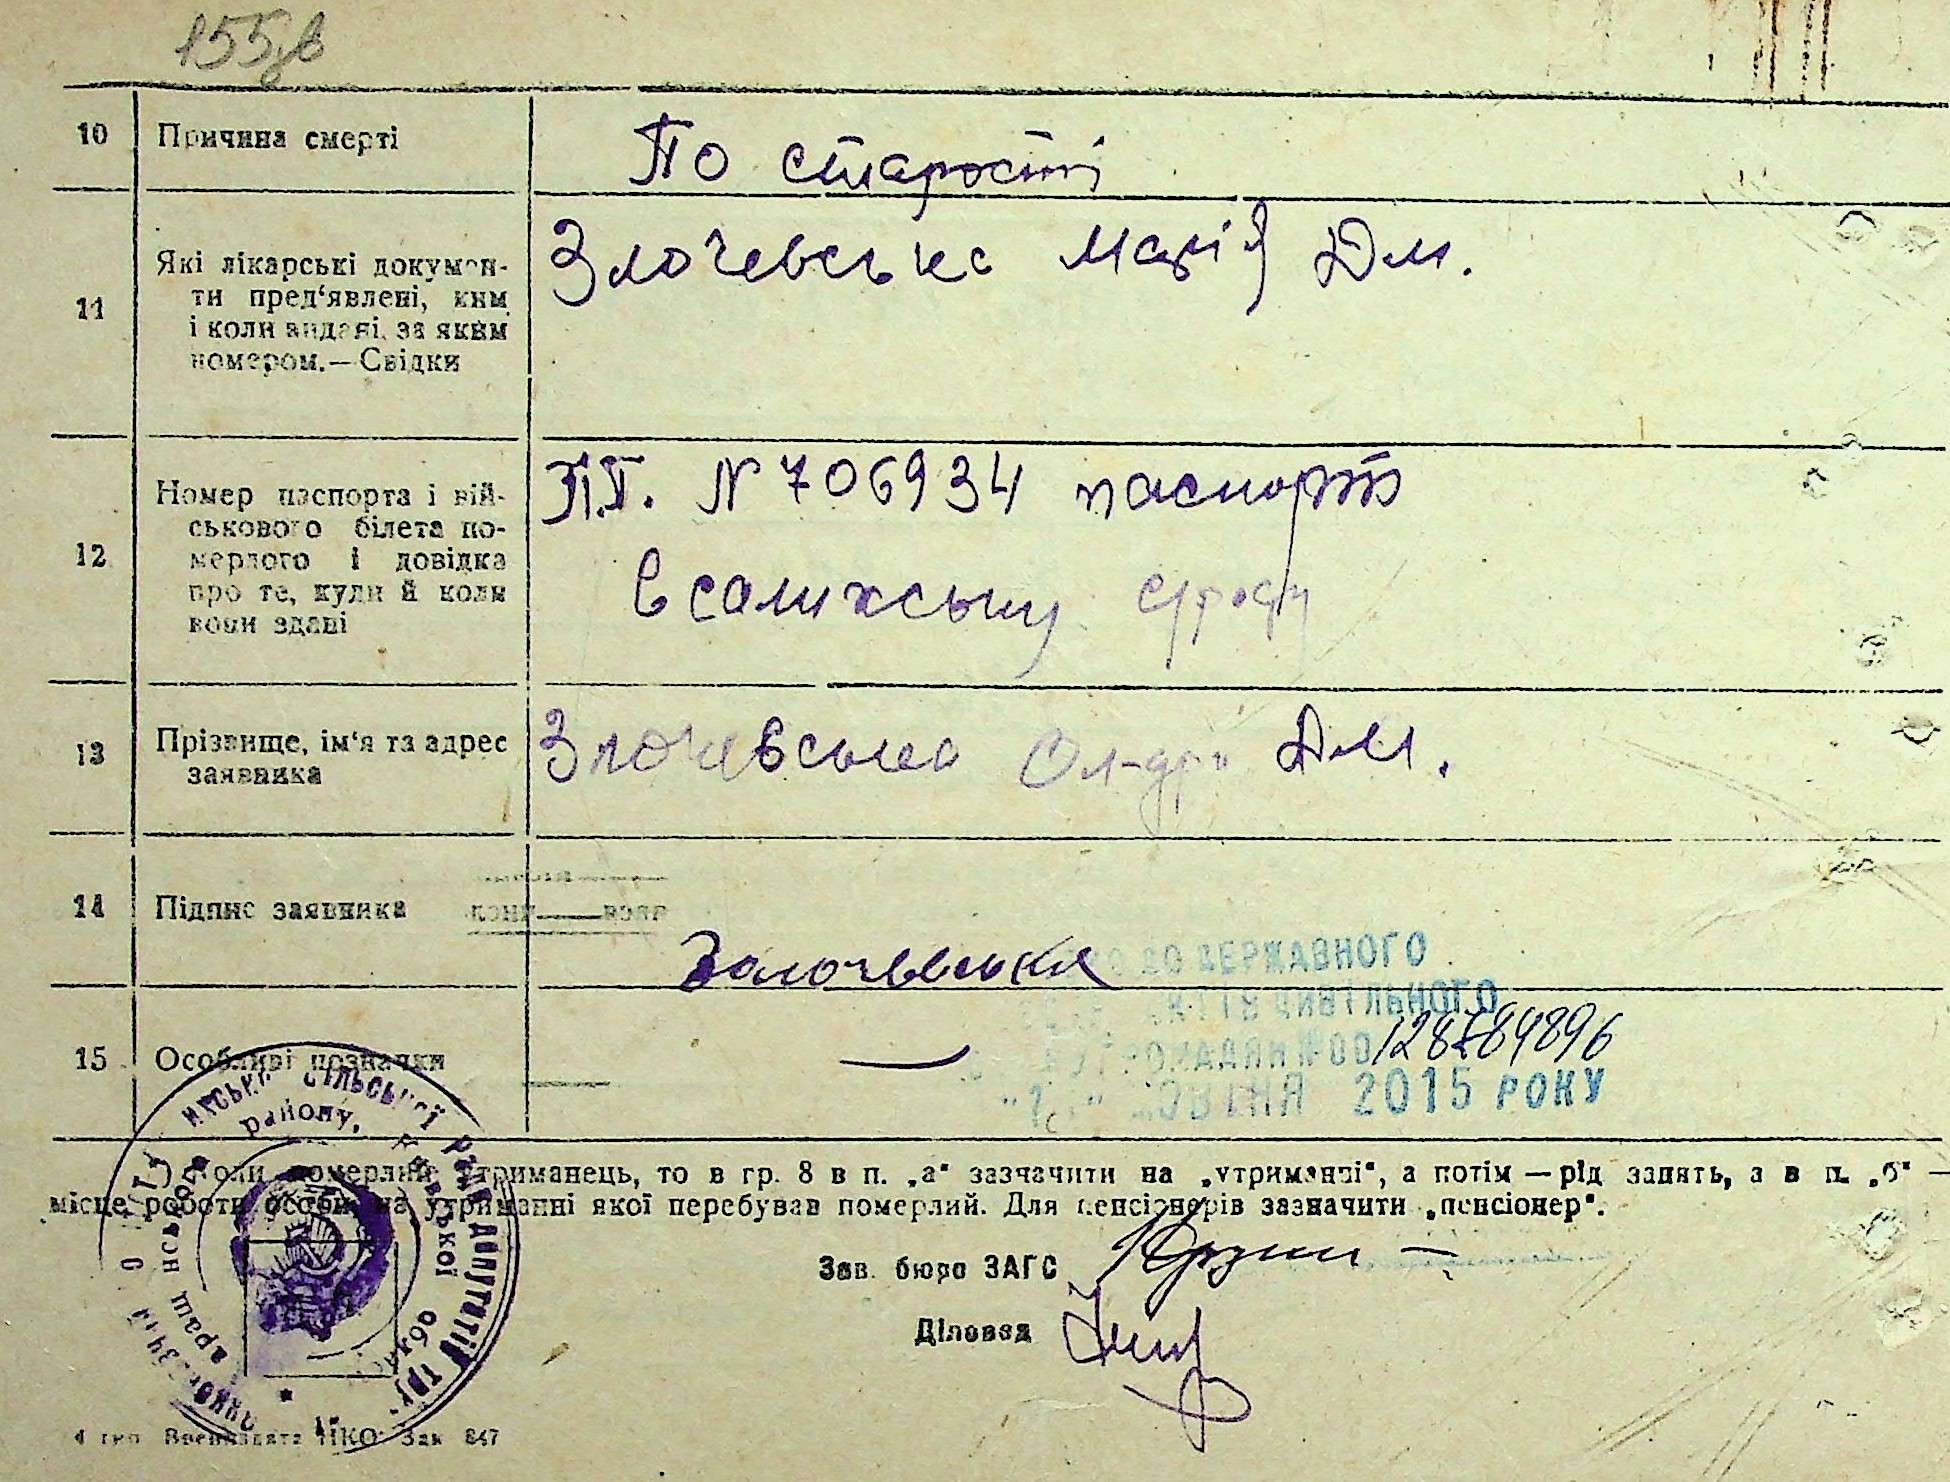 155
10 Причина смерті
По старості
11 Які лікарські докумен-
ти пред‘явлені, ким
і коли видані, за яким
номером.—Свідки
Злочевська Марія Дм.
12 Номер паспорта і вій-
ськового білета по-
мерлого і довідка
про те, куди й коли
вони здані
П.П. N 706934 паспорт
в
13 Прізвище, ім‘я та адрес
заявника
Злочевська Ол-дра Дм.
14 Підпис заявника
15 Особливі позначки
—
ДО ДЕРЖАВНОГО
ЦИВІЛЬНОГО
ГРОМАДЯН №00128784896
2015 РОКУ
) Коли померлий утриманець, то в гр. 8 в п. „а“ зазначити на „утриманні“, а потім — рід занять, а в п. „б“ —
місце роботи особи, на утриманні якої перебував померлий. Для пенсіонерів зазначити „пенсіонер“.
Зав. бюро ЗАГС
Діловод
сільської Ради депутатів
району, Київської обл.
4 Зак 847